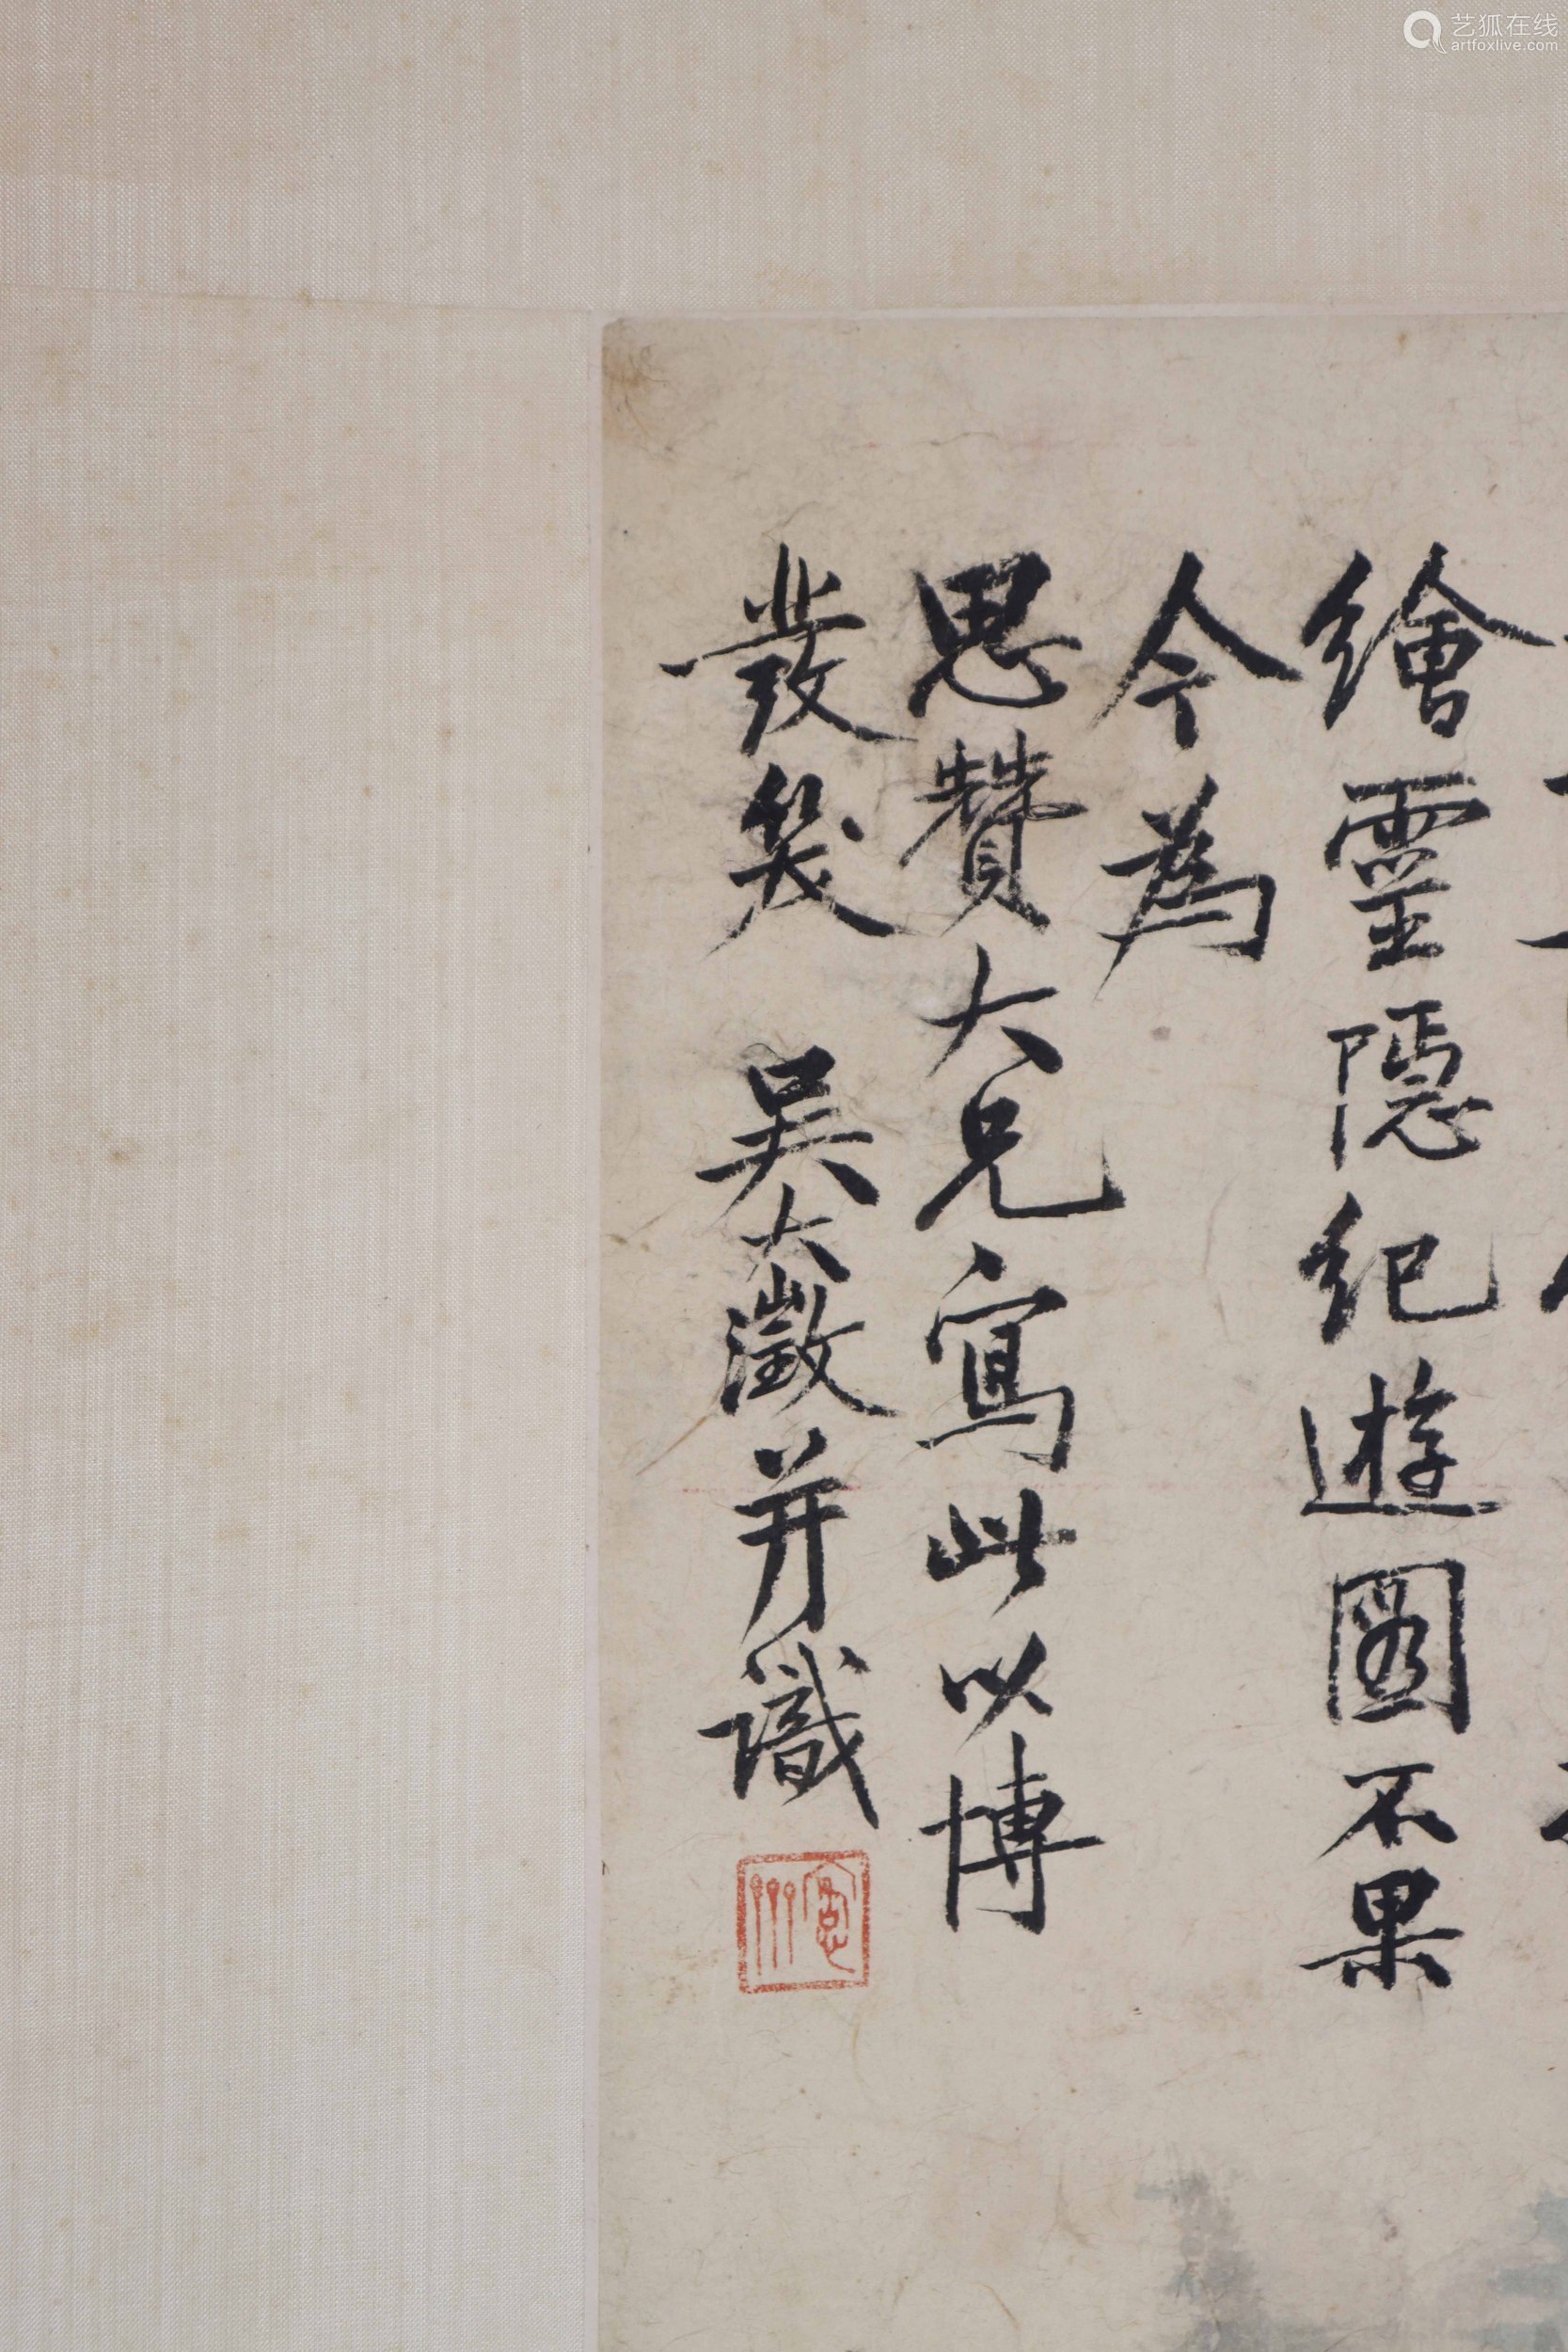 繪靈隱紀遊圖不果
今為
思贊大兄寫此以博
發笑 吳大澂并識
艺狐在线
artfoxlive.com